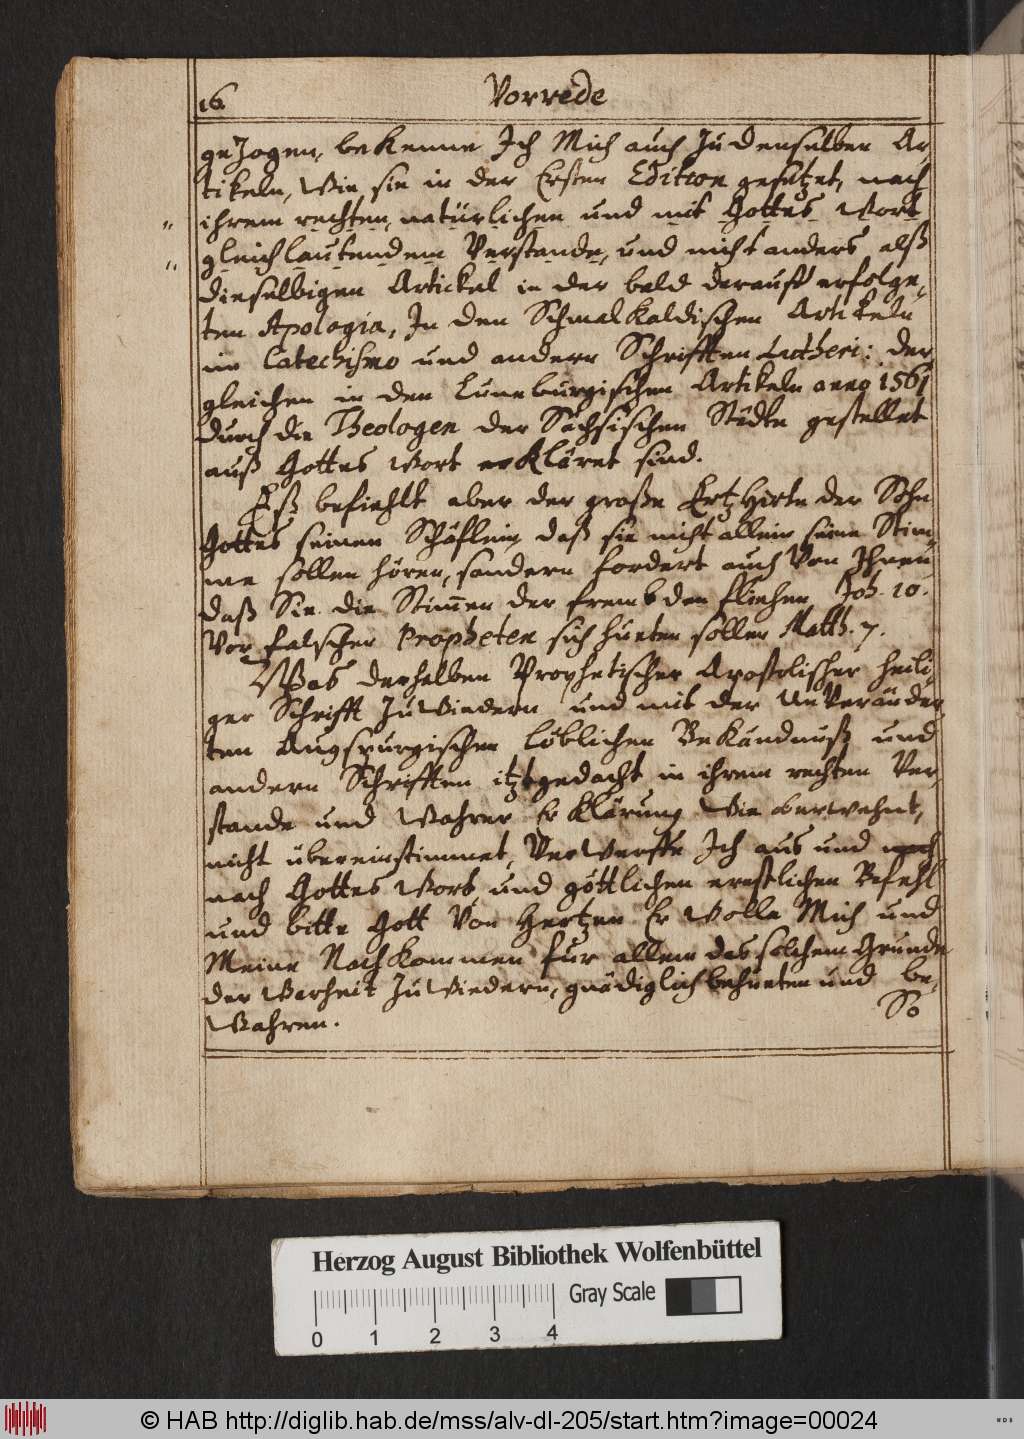 16. Vorrede
gezogen, bekenne Ich Mich auch zu denselben Ar,
tikeln, Wie sie in der Ersten Edition gesetzet, nach
" ihrem rechten, natürlichen und mit Gottes Wort
" gleichlautendem Verstande, und nicht anders alß
dieselbigen Artickel in der bald darauff erfolge,
ten Apologia, In den Schmalkaldischen Artikeln
im Catechismo und andern Schrifften Lutheri: der,
gleichen in den Lüneburgischen Artikeln anno 1561
durch die Theologen der Sächsischen Städte gestellet
auß Gottes Wort erkläret sind.
Eß befiehlt aber der große Ertz Hirte der Sohn
Gottes seinen Schäflein, daß sie nicht allein seine Stim,
me sollen hören, sondern fordert auch Von Ihnen
daß Sie die Stimmen der frembden fliehen Joh. 10.
Vor falschen Propheten sich hueten sollen Matth. 7.
Was derhalben Prophetischer Apostolischer heili,
ger Schrifft zuwiedern und mit der UnVeränder,
ten Augspurgischen löblichen Bekändnuß und
andern Schrifften itztgedacht in ihrem rechten Ver,
stande und Wahrer Erklärung Wie oberwehnt,
nicht übereinstimmet, Verwerffe Ich aus und
nach Gottes Wort, und göttlichen ernstlichen Befehl
und bitte Gott Von Hertzen Er Wolle Mich und
Meine Nachkommen fur allem das solchem Grunde
der Warheit zuwiedern, gnädiglich behueten und be,
Wahren.
So
Herzog August Bibliothek Wolfenbüttel
Gray Scale
0 1 2 3 4
© HAB http://diglib.hab.de/mss/alv-dl-205/start.htm?image=00024
WDB